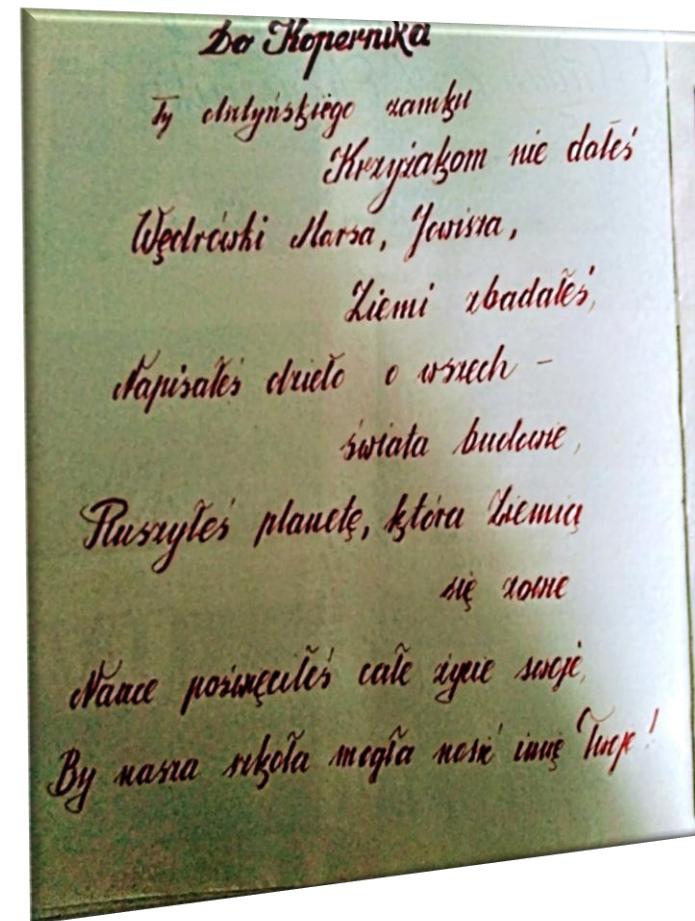 Do Kopernika
Ty olsztyńskiego zamku
Krzyżakom nie dałeś
Wędrówki Marsa, Jowisza,
Ziemi zbadałeś,
Napisałeś dzieło o wszech –
świata budowie,
Ruszyłeś planetę, która Ziemią
się zowie
Nauce poświęciłeś całe życie swoje,
By nasza szkoła mogła nosić imię Twoje!